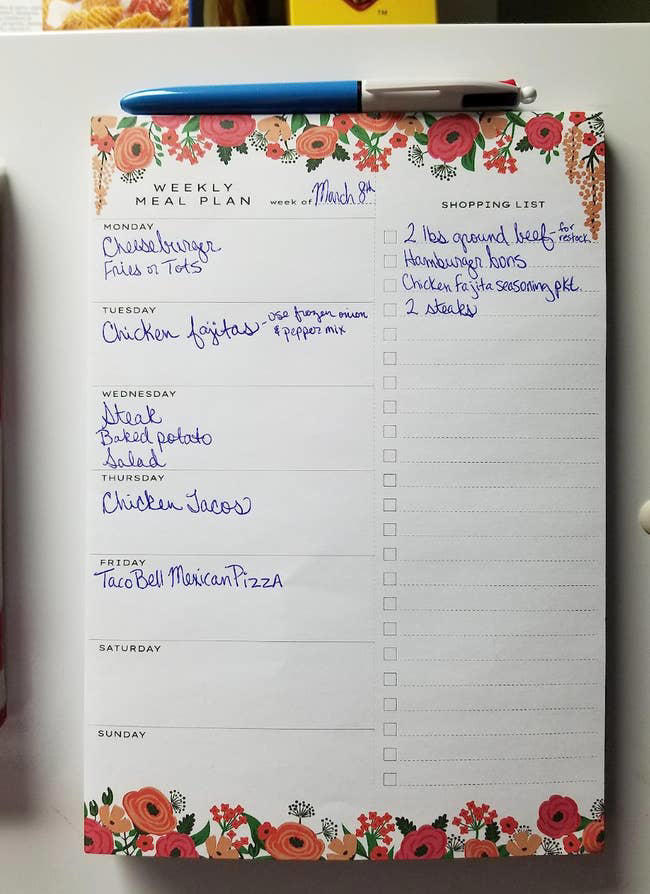 TM
WEEKLY
MEAL PLAN
week of March 8th
MONDAY
Cheeseburger
Fries or Tots
TUESDAY
Chicken fajitas - use frozen onion
& pepper mix
WEDNESDAY
Steak
Baked potato
Salad
THURSDAY
Chicken Tacos
FRIDAY
Taco Bell Mexican Pizza
SATURDAY
SUNDAY
SHOPPING LIST
2 lbs ground beef - for
restock
Hamburger buns
Chicken Fajita seasoning pkt.
2 steaks